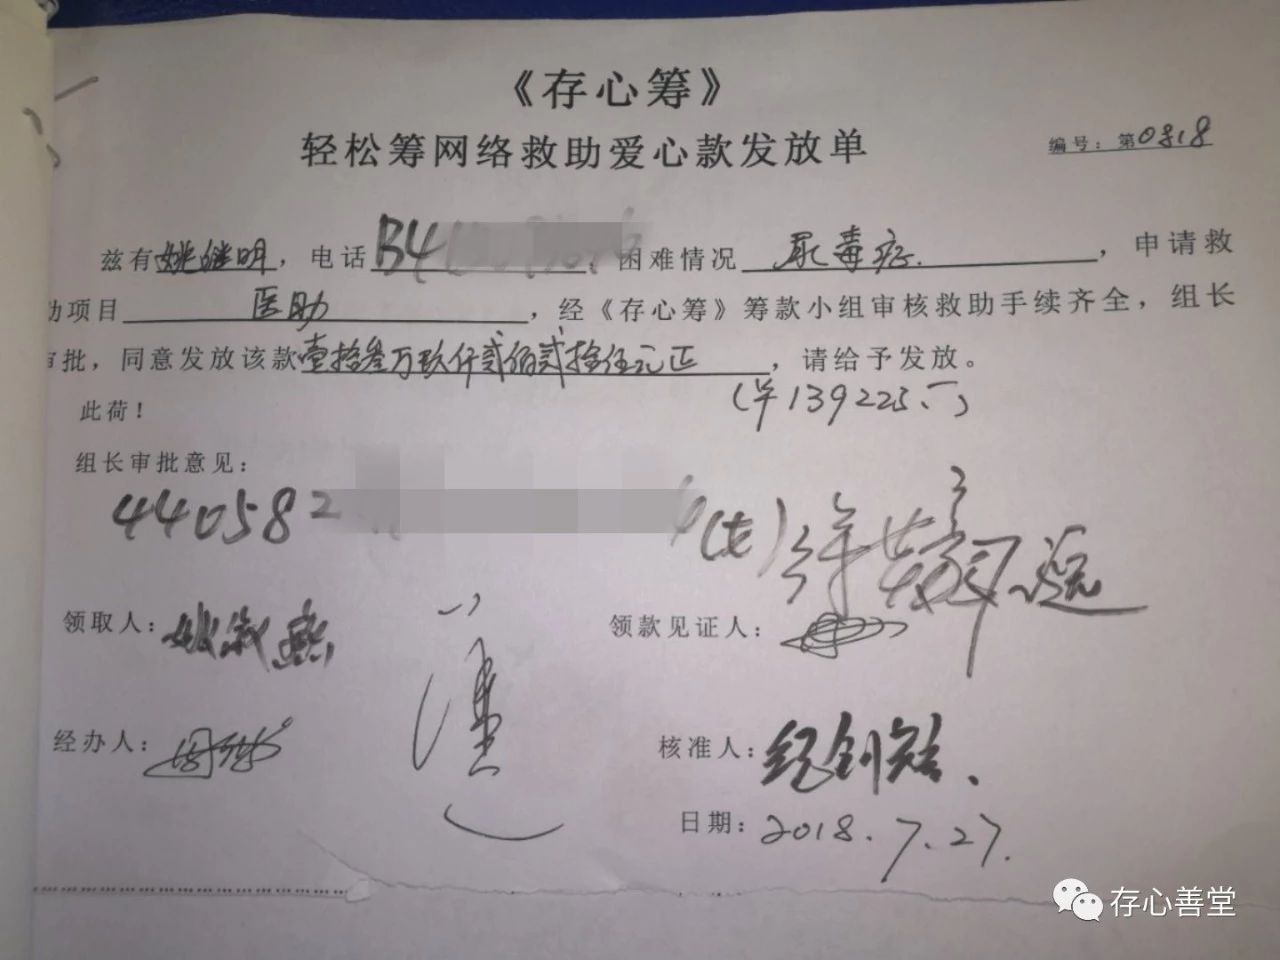 《存心筹》
轻松筹网络救助爱心款发放单
编号：第0818
兹有姚继明，电话 困难情况 尿毒症，申请救
助项目 医助，经《存心筹》筹款小组审核救助手续齐全，组长
审批，同意发放该款壹拾叁万玖仟贰佰贰拾伍元正，请给予发放。
(¥139225.-)
此荷！
组长审批意见：
440582
领取人：姚
领款见证人：
经办人：
核准人：纪剑
日期：2018.7.27.
存心善堂